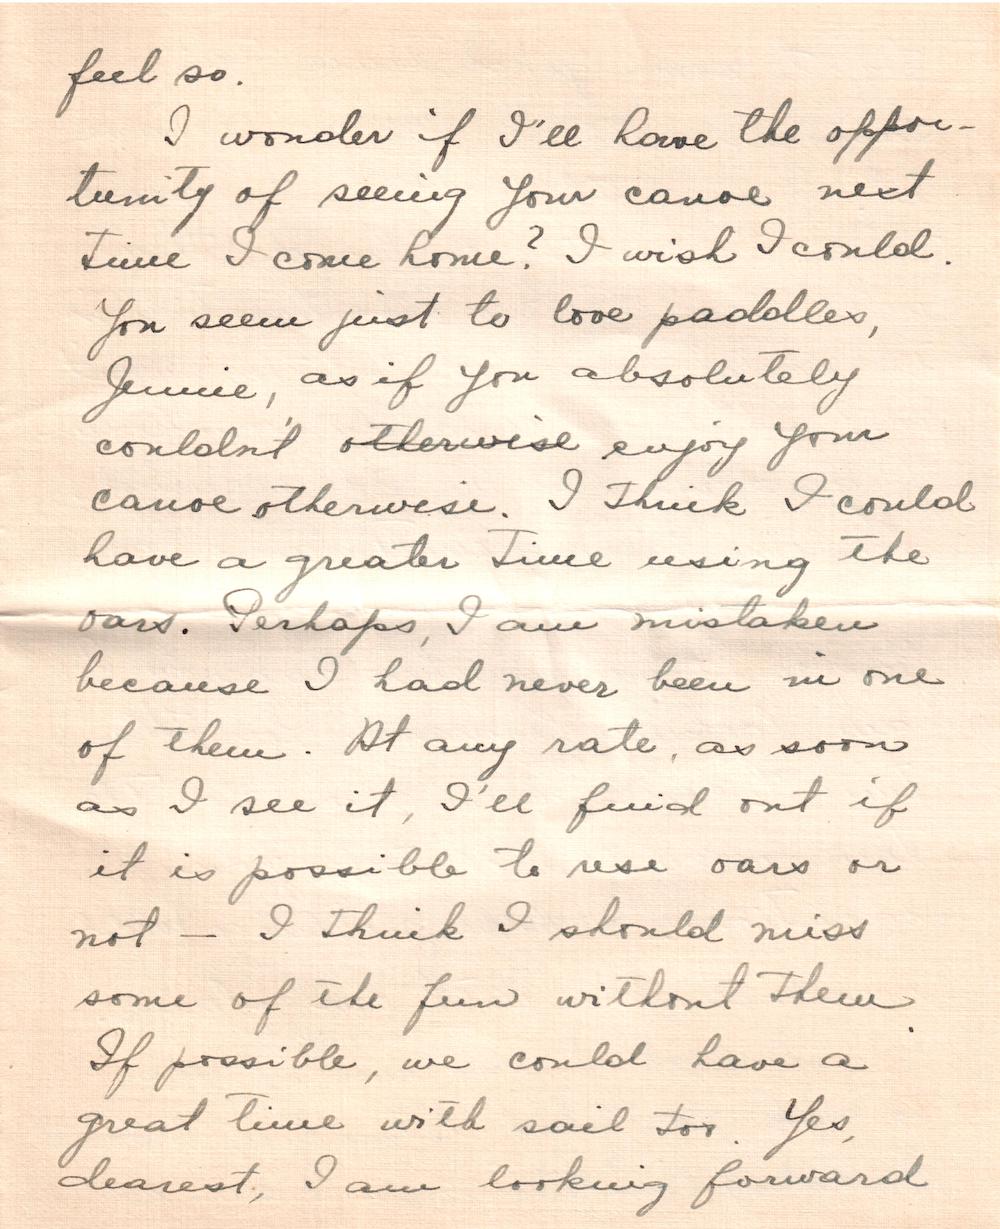 feel so.
I wonder if I'll have the oppor-
tunity of seeing your canoe next
time I come home? I wish I could.
You seem just to love paddles,
Jennie, as if you absolutely
couldn't otherwise enjoy your
canoe otherwise. I think I could
have a greater time using the
oars. Perhaps, I am mistaken
because I had never been in one
of them. At any rate, as soon
as I see it, I'll find out if
it is possible to use oars or
not — I think I should miss
some of the fun without them.
If possible, we could have a
great time with sail too. Yes,
dearest, I am looking forward